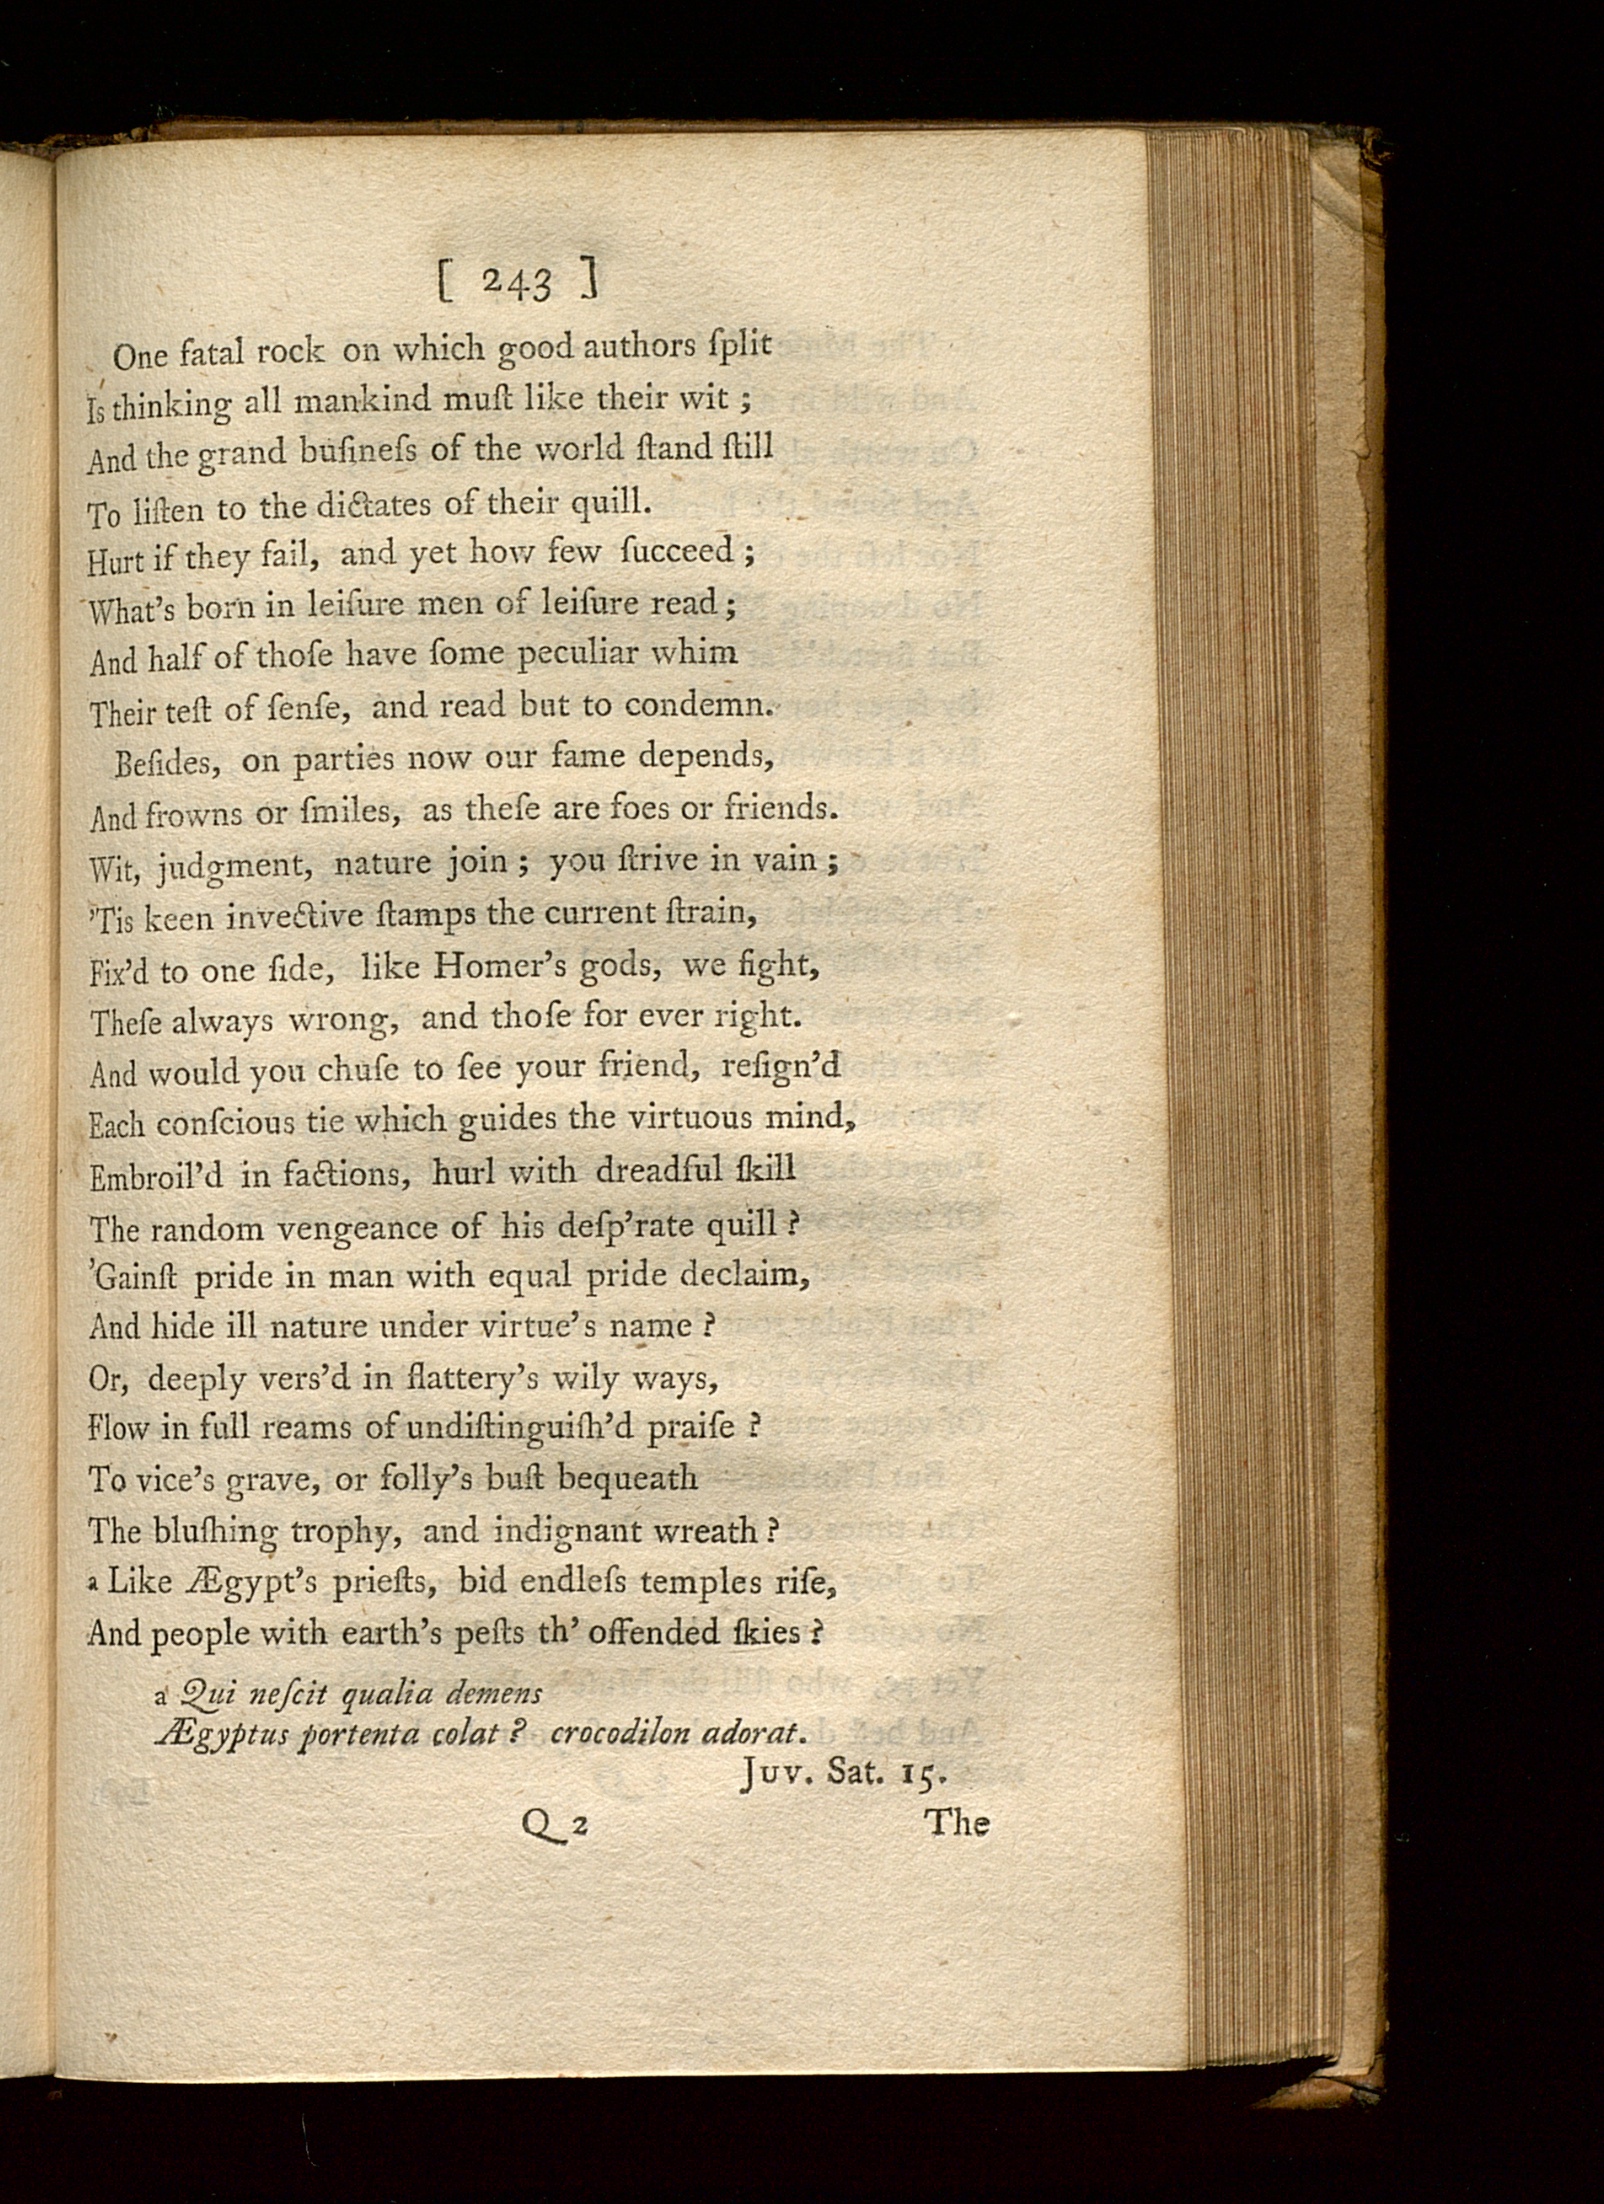 [ 243 ]
One fatal rock on which good authors ſplit
Is thinking all mankind muſt like their wit ;
And the grand buſineſs of the world ſtand ſtill
To liſten to the dictates of their quill.
Hurt if they fail, and yet how few ſucceed ;
What's born in leiſure men of leiſure read ;
And half of thoſe have ſome peculiar whim
Their teſt of ſenſe, and read but to condemn.
Beſides, on parties now our fame depends,
And frowns or ſmiles, as theſe are foes or friends.
Wit, judgment, nature join ; you ſtrive in vain ;
'Tis keen invective ſtamps the current ſtrain,
Fix'd to one ſide, like Homer's gods, we fight,
Theſe always wrong, and thoſe for ever right.
And would you chuſe to ſee your friend, reſign'd
Each conſcious tie which guides the virtuous mind,
Embroil'd in factions, hurl with dreadful ſkill
The random vengeance of his deſp'rate quill ?
'Gainſt pride in man with equal pride declaim,
And hide ill nature under virtue's name ?
Or, deeply vers'd in flattery's wily ways,
Flow in full reams of undiſtinguiſh'd praiſe ?
To vice's grave, or folly's buſt bequeath
The bluſhing trophy, and indignant wreath ?
a Like Ægypt's prieſts, bid endleſs temples riſe,
And people with earth's peſts th' offended ſkies ?
a Qui neſcit qualia demens
Ægyptus portenta colat ? crocodilon adorat.
Juv. Sat. 15.
Q 2 The